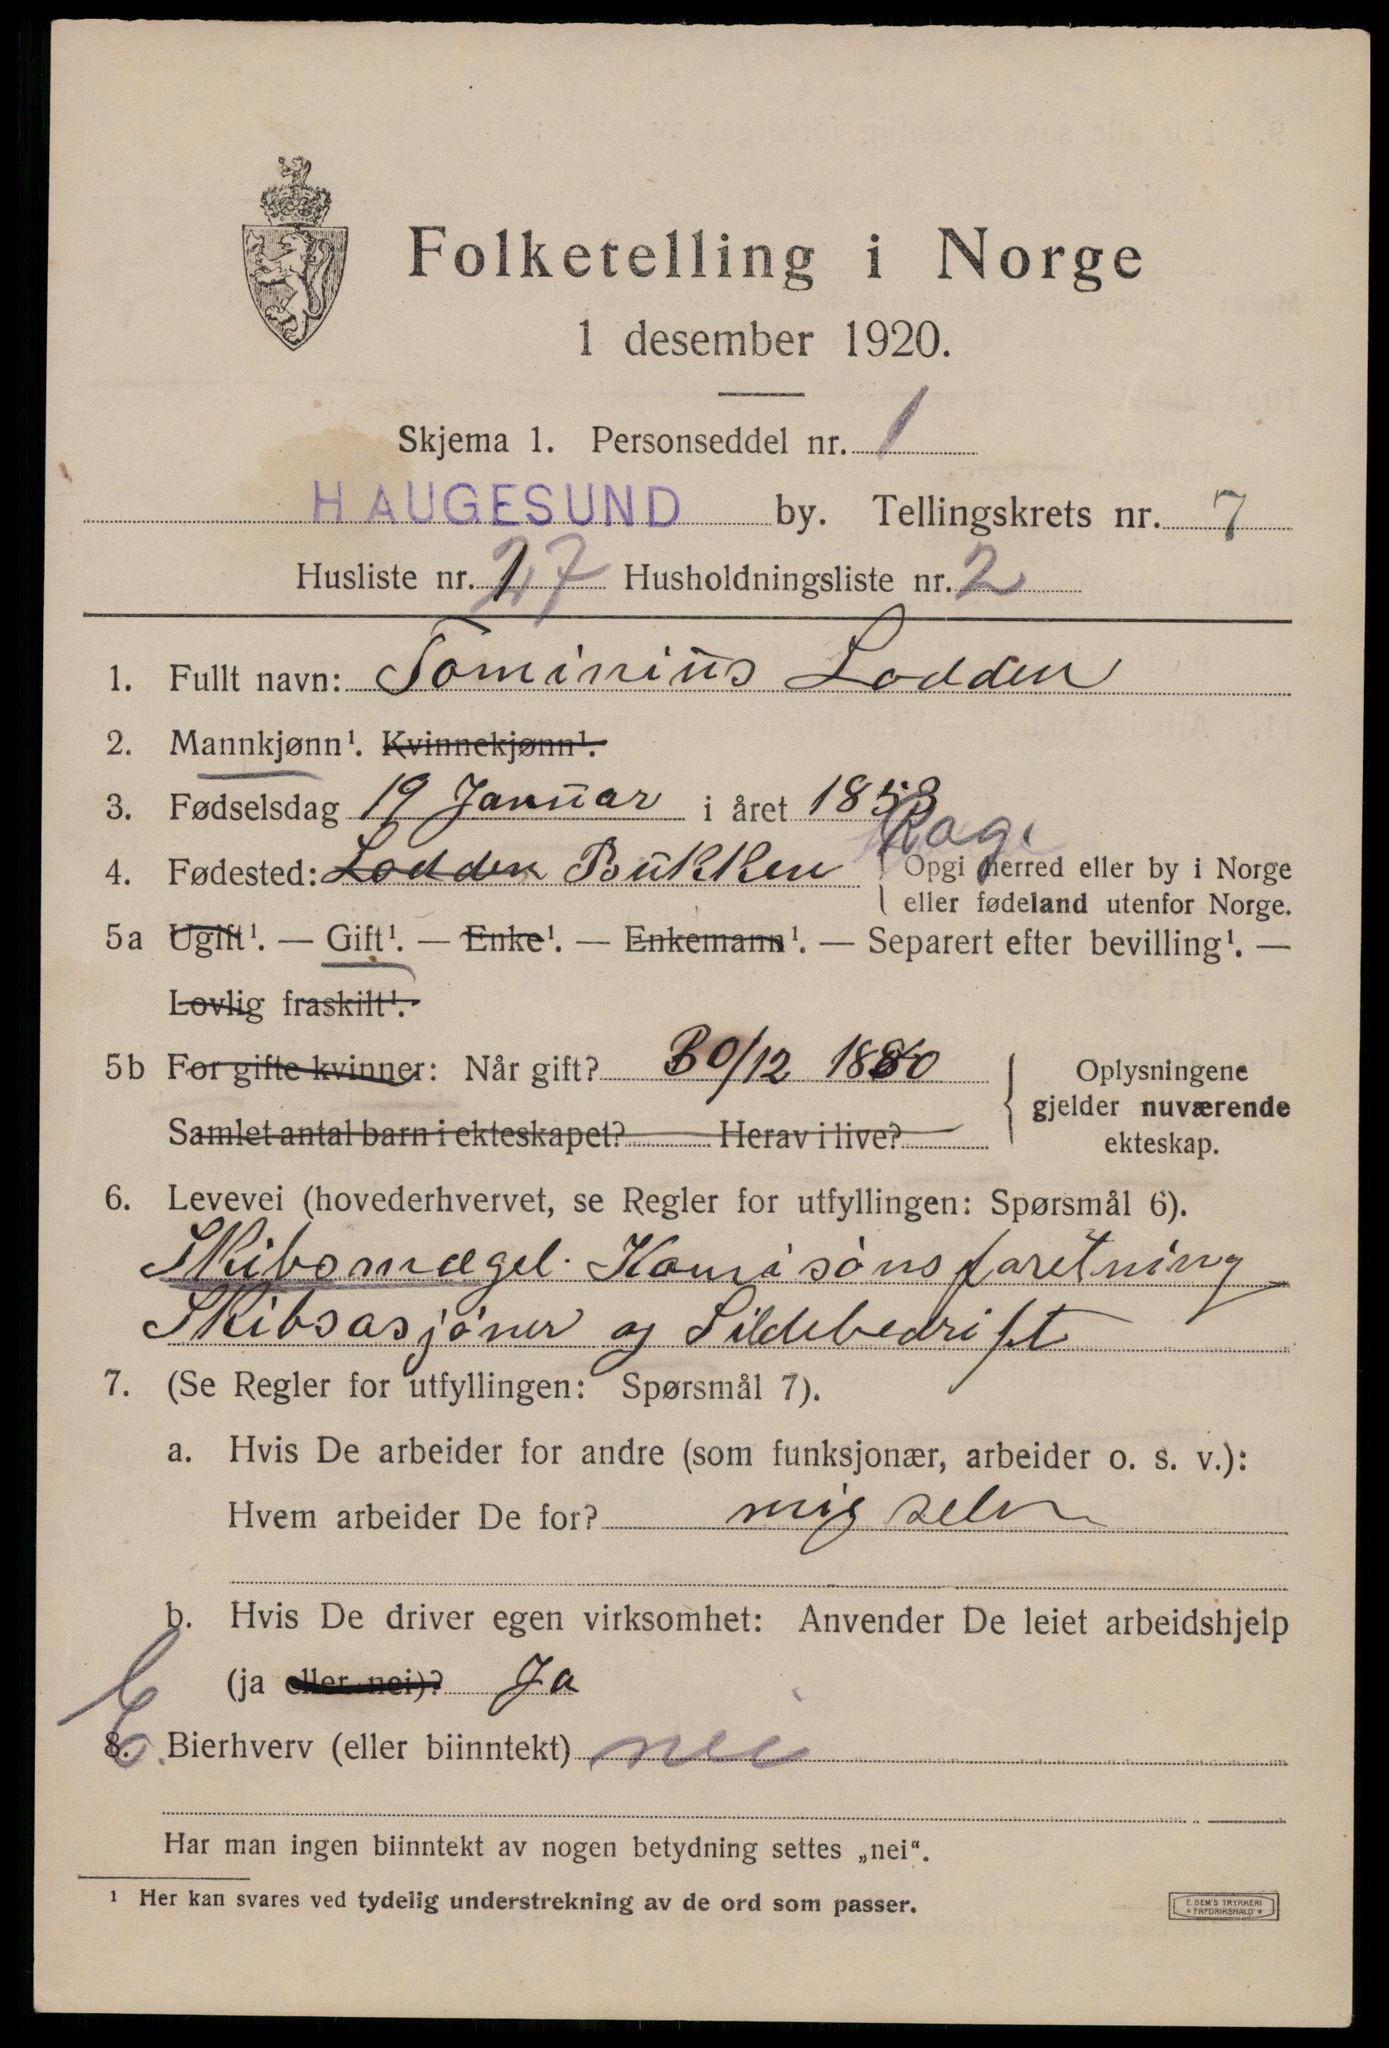 Folketelling i Norge
1 desember 1920.
Skjema 1. Personseddel nr. 1
HAUGESUND by. Tellingskrets nr. 7
Husliste nr. 27 Husholdningsliste nr. 2
1. Fullt navn: Tominius Lodden
2. Mannkjønn¹. Kvinnekjønn¹.
3. Fødselsdag 19 Januar i året 1858
Rog.
4. Fødested: Lodden Bukken Opgi herred eller by i Norge
eller fødeland utenfor Norge.
5a Ugift¹. — Gift¹. — Enke¹. — Enkemann¹. — Separert efter bevilling¹. —
Lovlig fraskilt¹.
5b For gifte kvinner: Når gift? 30/12 1880
Samlet antal barn i ekteskapet? Herav i live?
Oplysningene
gjelder nuværende
ekteskap.
6. Levevei (hovederhvervet, se Regler for utfyllingen: Spørsmål 6).
Skibsmægel. Komisönsforetning
Skibsasjöner og Sildebedrift
7. (Se Regler for utfyllingen: Spørsmål 7).
a. Hvis De arbeider for andre (som funksjonær, arbeider o. s. v.):
Hvem arbeider De for? mig selv
b. Hvis De driver egen virksomhet: Anvender De leiet arbeidshjelp
(ja eller nei)? Ja
E.
8. Bierhverv (eller biinntekt) nei
Har man ingen biinntekt av nogen betydning settes „nei“.
¹ Her kan svares ved tydelig understrekning av de ord som passer.
E. SEM'S TRYKKERI
FREDRIKSHALD